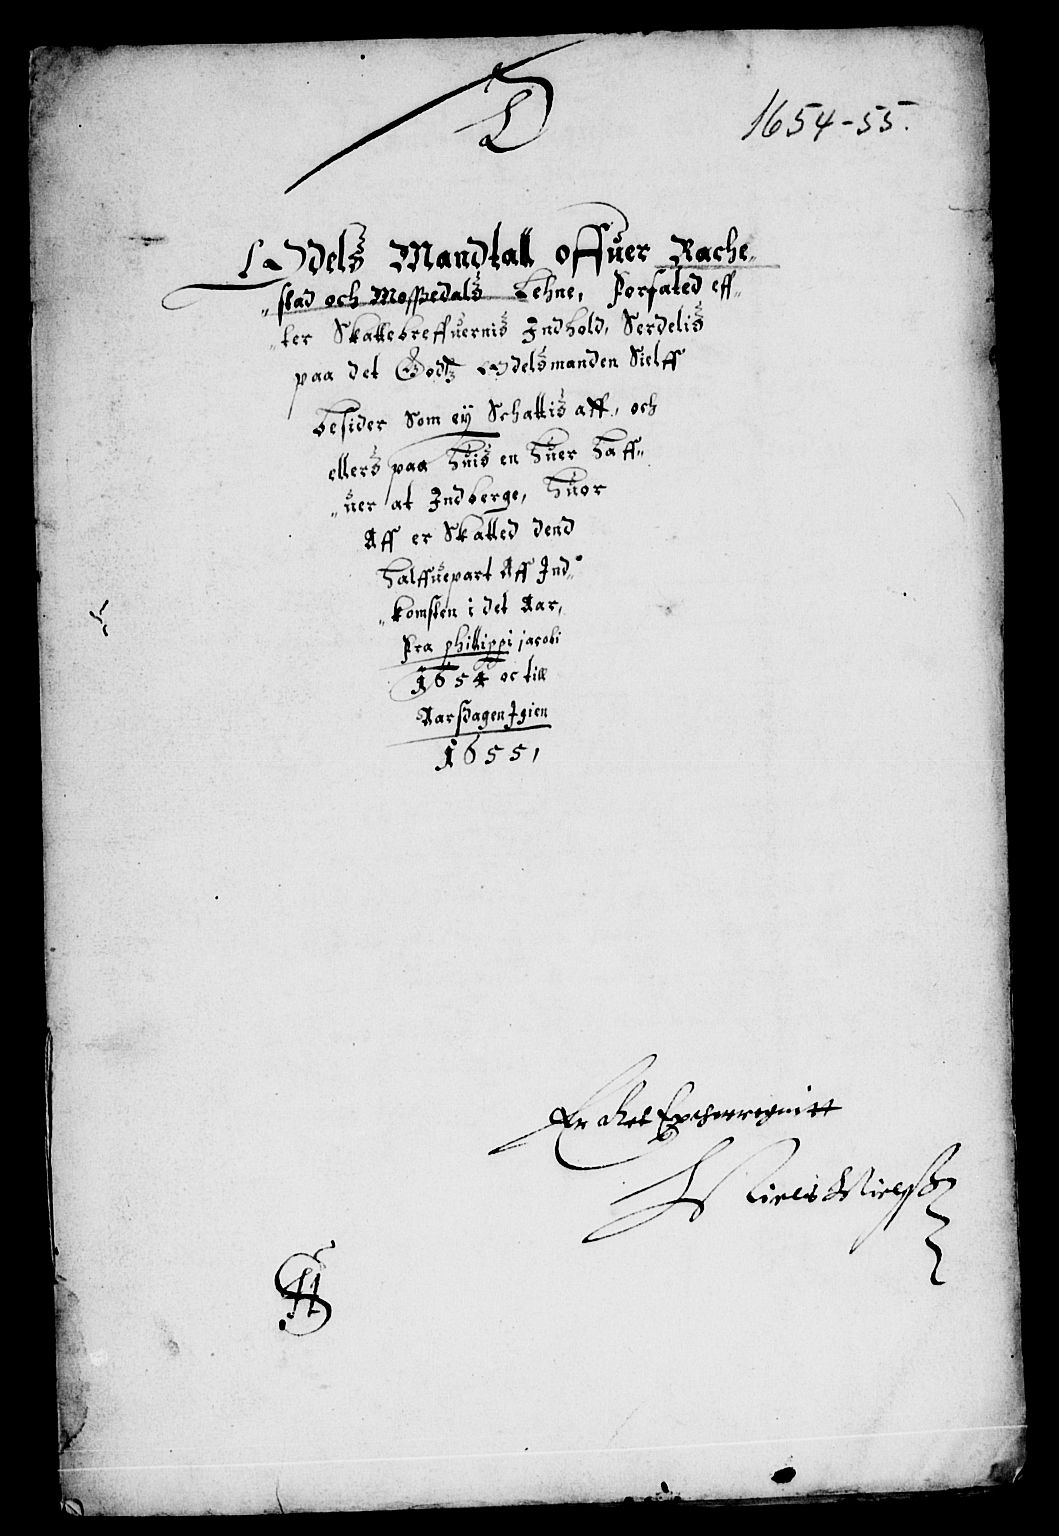 D
1654-55.
Odels Mandtall offuer Rache„
„stad och Mossedals Lehne, Forfated eff„
„ter Skattebreffuernis Indhold, Serdelis
paa det Godtz Odelsmanden Sielff
besider Som ey Schattis aff, och
ellers paa huis en huer haff„
„uer at Indberge, huor
Aff er Skatted dend
halffuepart Aff Ind„
„komsten i det Aar,
Fra phillippi jacobi
1654 oc till
Aarsdagen Igien
1655,
Er Ret
Niels Nielsß